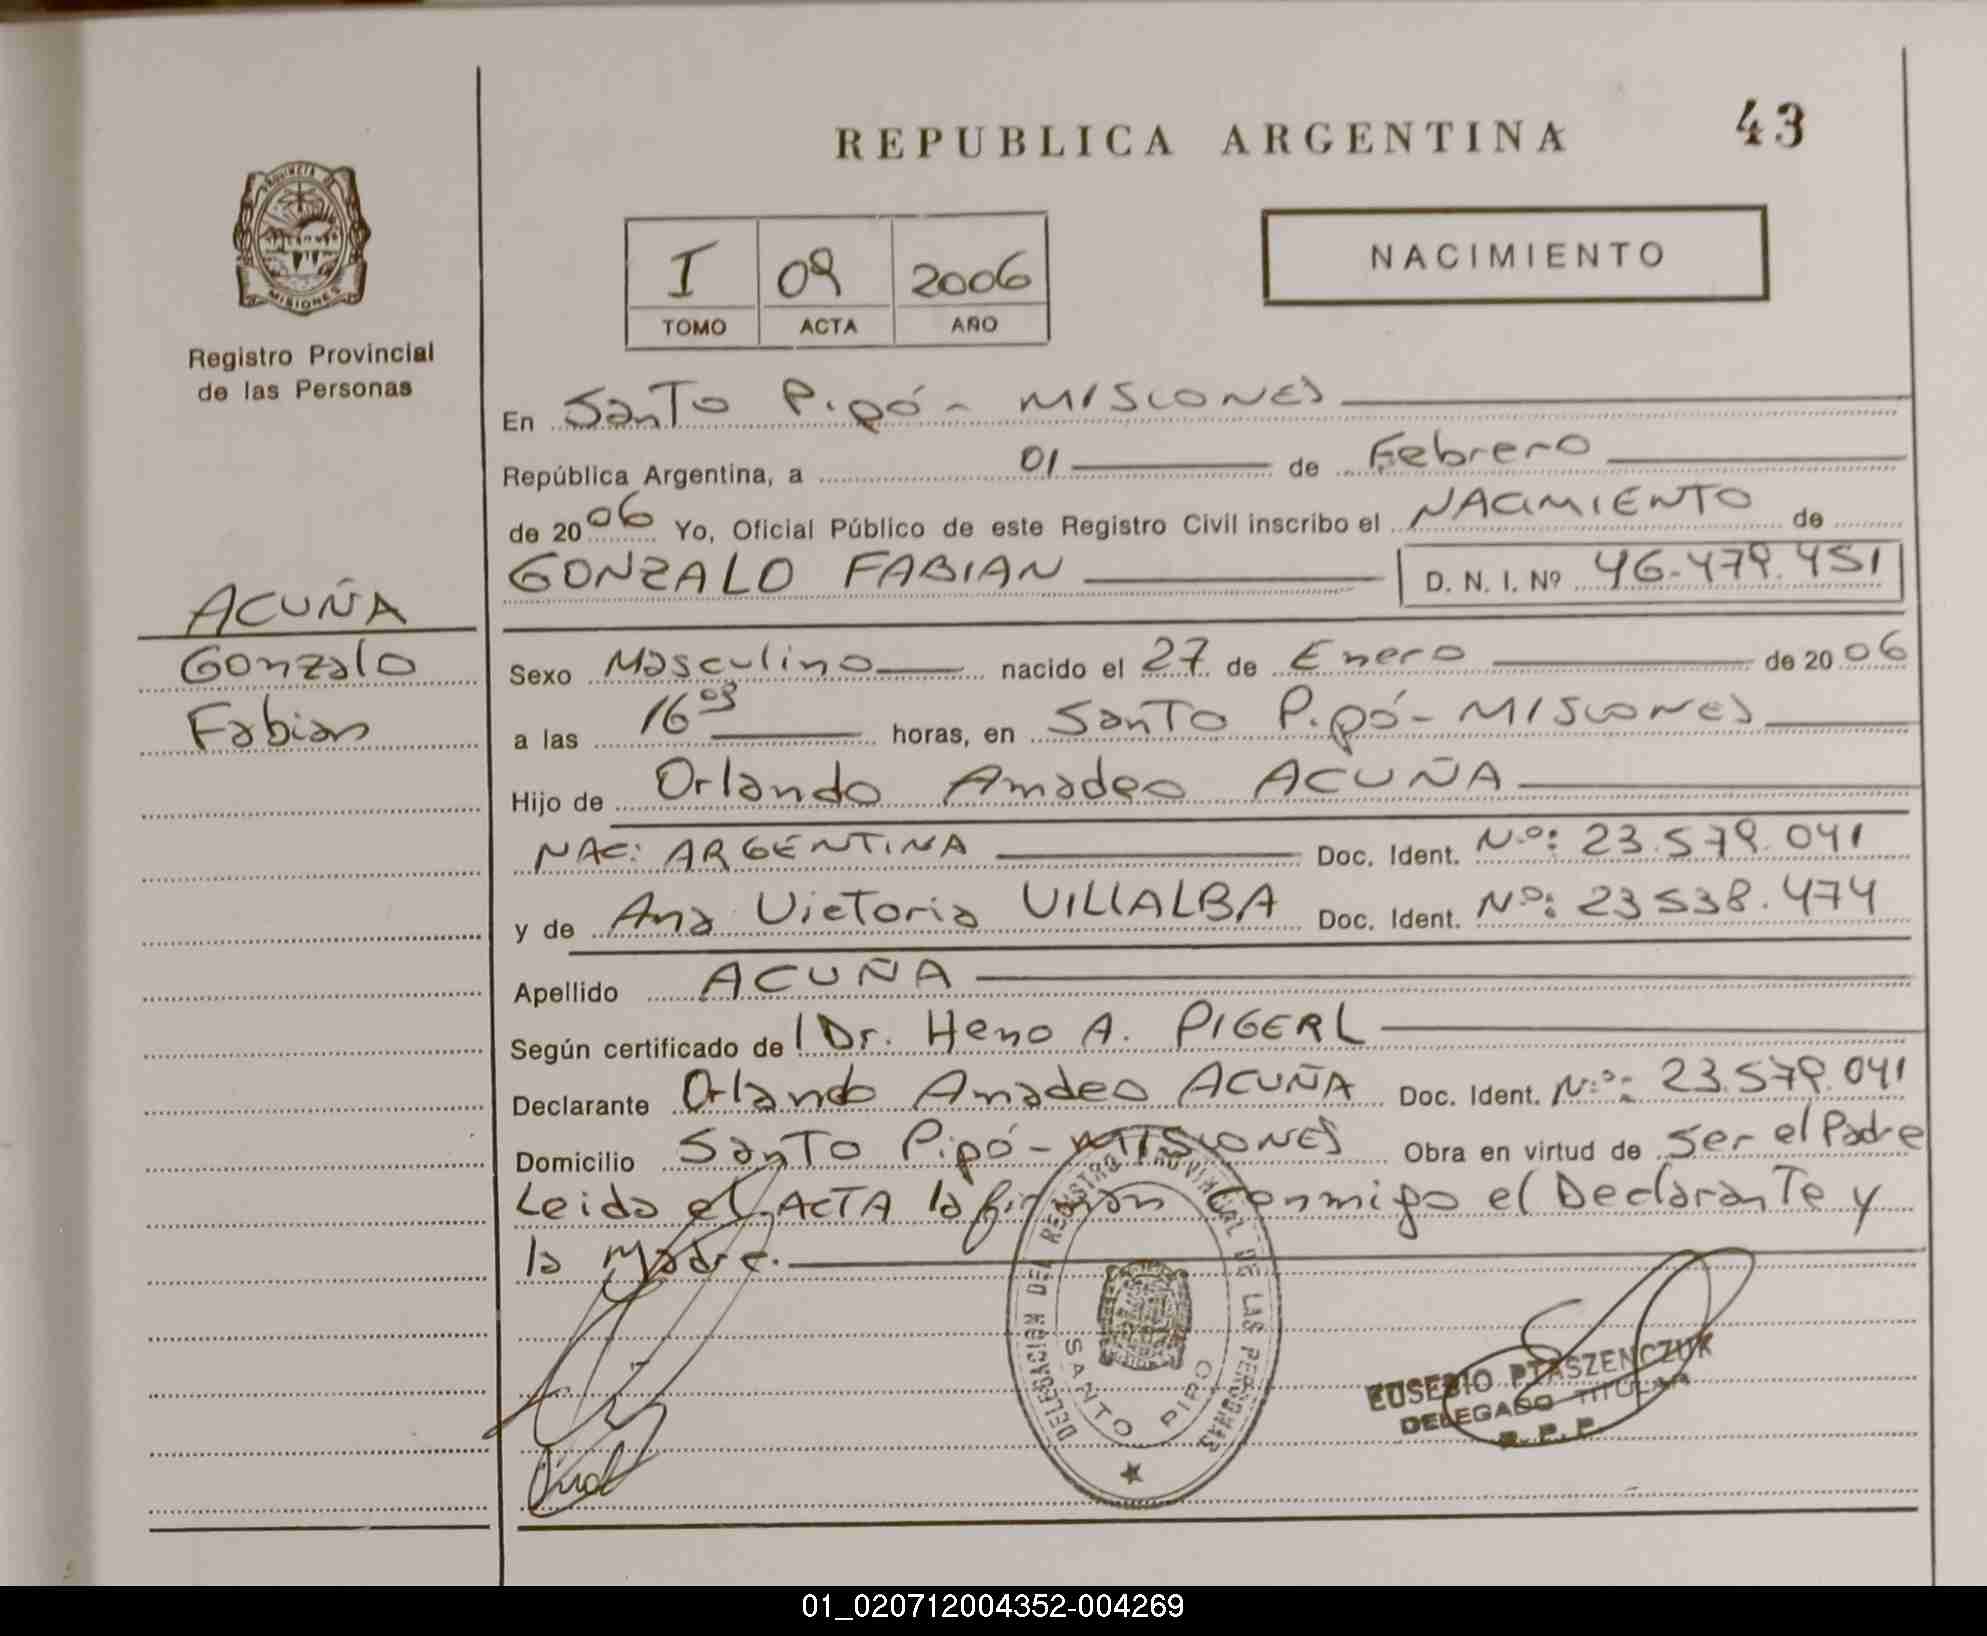 REPUBLICA ARGENTINA
43
PROVINCIA DE
MISIONES
Registro Provincial
de las Personas
I 09 2006
TOMO ACTA AÑO
NACIMIENTO
En Santo Pipó - MISIONES
República Argentina, a 01 de Febrero
de 2006 Yo, Oficial Público de este Registro Civil inscribo el NACIMIENTO de
GONZALO FABIAN D. N. I. Nº 46.479.451
ACUÑA
Gonzalo
Fabian
Sexo Masculino nacido el 27 de Enero de 2006
a las 16 03 horas, en Santo Pipó - MISIONES
Hijo de Orlando Amadeo ACUÑA
NAC: ARGENTINA Doc. Ident. Nº: 23.579.041
y de Ana Victoria VILLALBA Doc. Ident. Nº: 23.538.474
Apellido ACUÑA
Según certificado de Dr. Heno A. PIGERL
Declarante Orlando Amadeo ACUÑA Doc. Ident. Nº: 23.579.041
Domicilio Santo Pipó - MISIONES Obra en virtud de ser el Padre
Leida el ACTA la firman conmigo el Declarante y
la Madre.
DELEGACION DEL REGISTRO PROVINCIAL DE LAS PERSONAS
SANTO PIPO
EUSEBIO PTASZENCZUK
DELEGADO TITULAR
R. P. P.
01_020712004352-004269